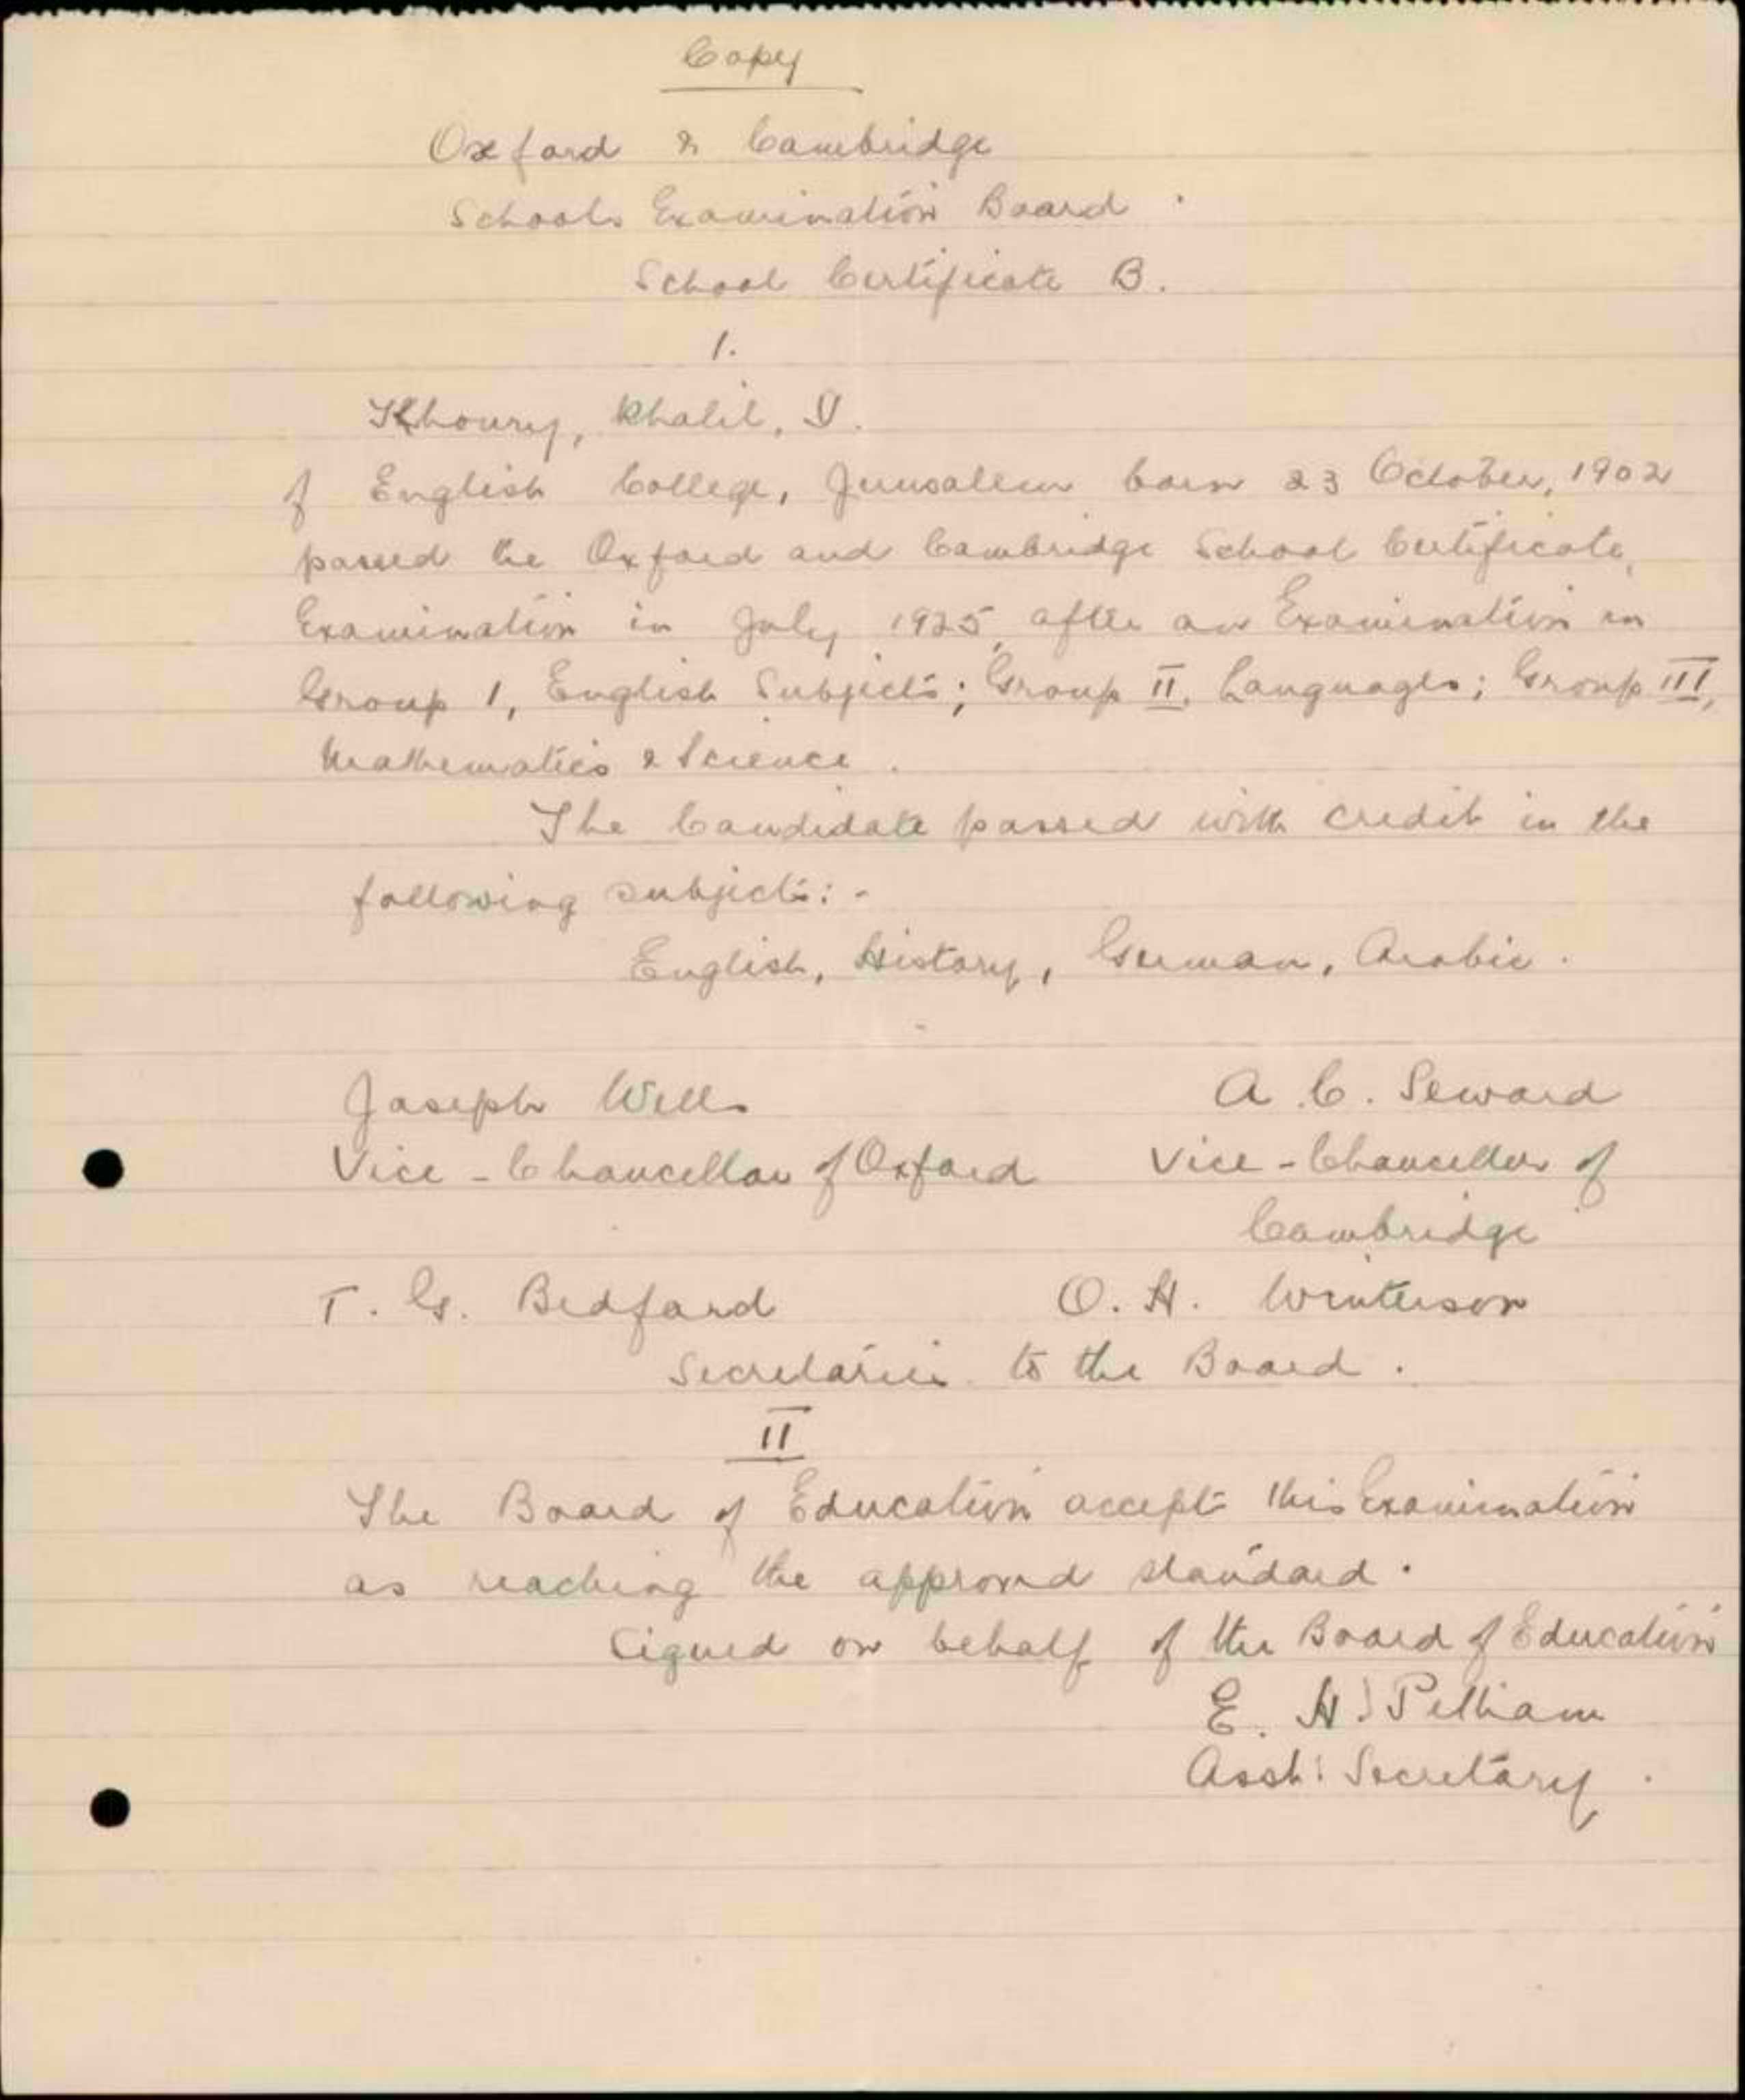 Copy
Oxford & Cambridge
Schools Examination Board.
School Certificate B.
1.
Khoury, Khalil, S.
of English College, Jerusalem born 23 October, 1902
passed the Oxford and Cambridge School Certificate,
Examination in July 1925, after an Examination in
Group 1, English Subjects; Group II. Languages; Group III,
Mathematics & Science.
The Candidate passed with credit in the
following subjects:-
English, History, German, Arabic.
Joseph Wells
A. C. Seward
Vice-Chancellor of Oxford
Vice-Chancellor of
Cambridge
T. G. Bedford
O. H. Winterson
Secretaries to the Board.
II
The Board of Education accept this Examination
as reaching the approved standard.
Signed on behalf of the Board of Education
E. H. Pelham
Asst: Secretary.